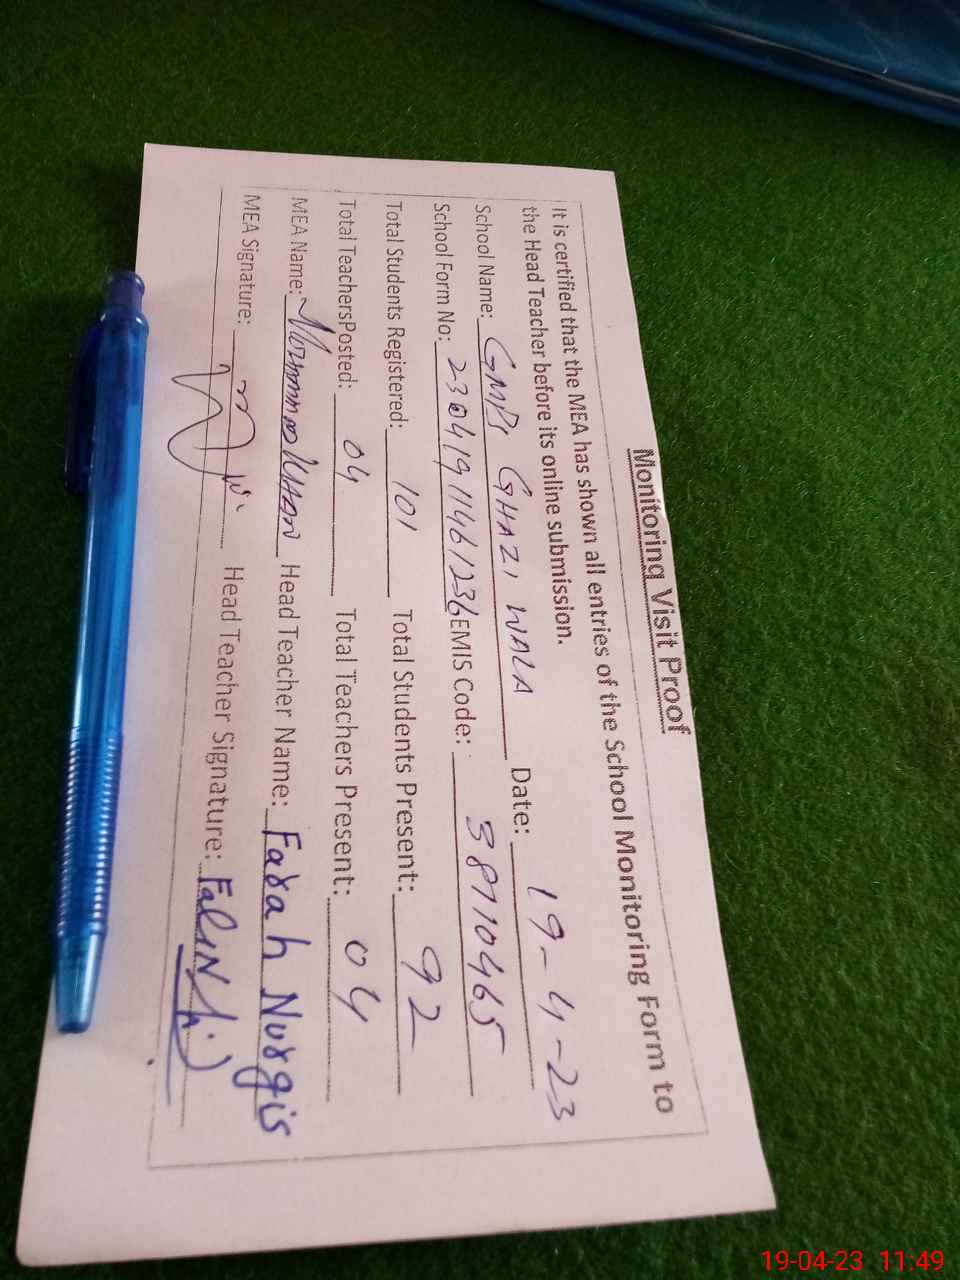 Monitoring Visit Proof
It is certified that the MEA has shown all entries of the School Monitoring Form to
the Head Teacher before its online submission.
School Name: GMPS GHAZI WALA Date: 19-4-23
School Form No: 23041911461236 EMIS Code: 38710465
Total Students Registered: 101 Total Students Present: 92
Total TeachersPosted: 04 Total Teachers Present: 04
MEA Name: Head Teacher Name: Farah Nargis
MEA Signature: Head Teacher Signature:
19-04-23 11:49